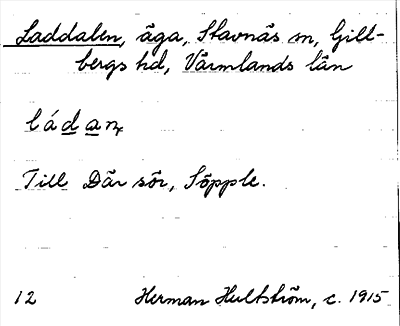 Laddalen, äga, Stavnäs sn, Gill-
bergs hd, Värmlands län
ládan
Till Där sör, Söpple.
12 Herman Hultström, c. 1915